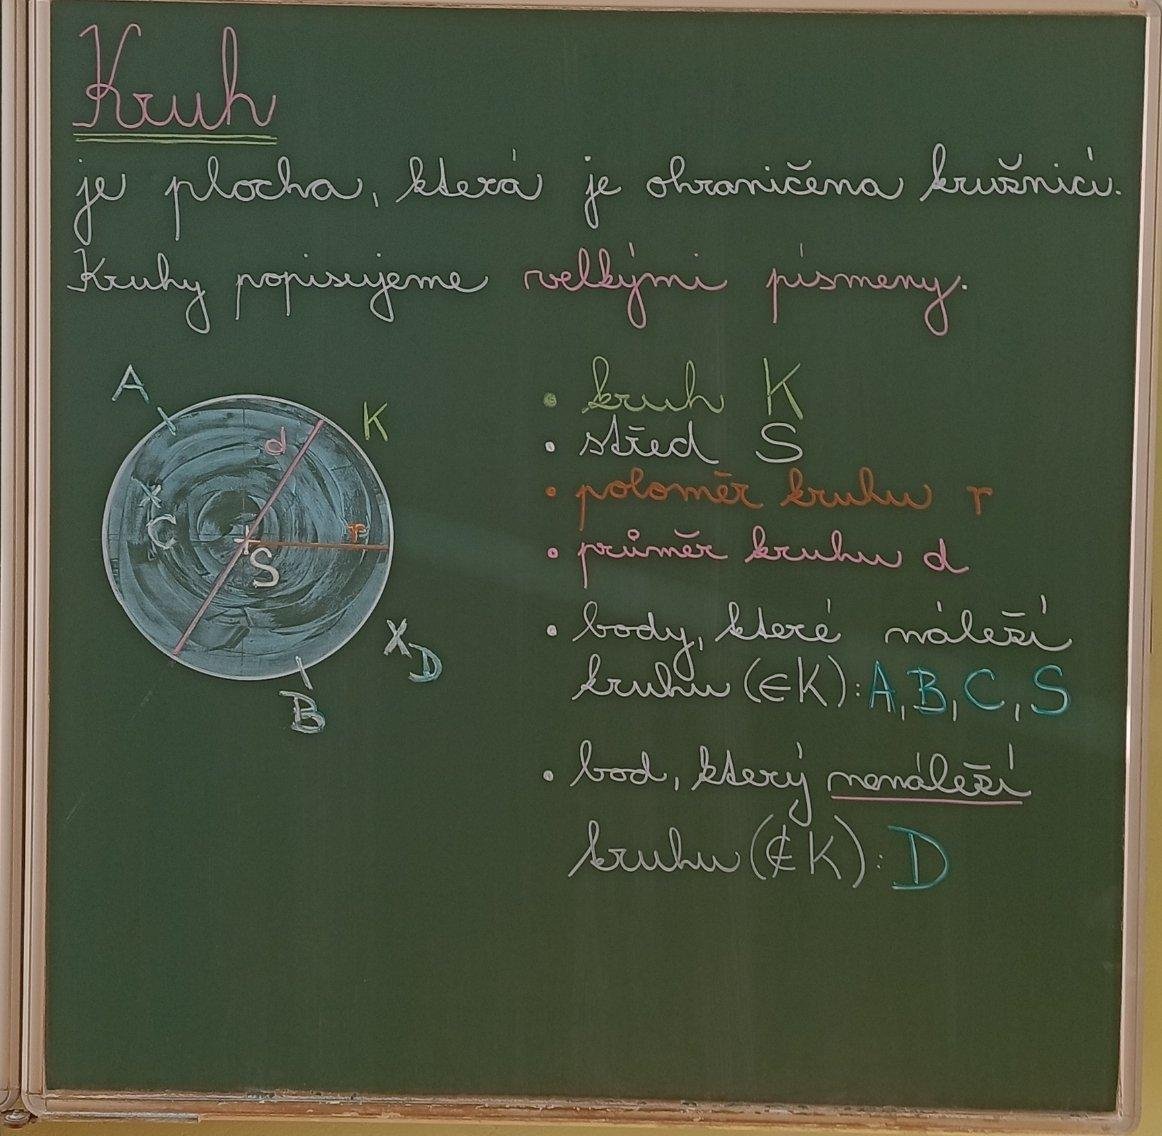 Kruh
je plocha, která je ohraničena kružnicí.
Kruhy popisujeme velkými písmeny.
A
K
d
C
r
S
D
B
• kruh K
• střed S
• poloměr kruhu r
• průměr kruhu d
• body, které náleží
kruhu (∈K): A, B, C, S
• bod, který nenáleží
kruhu (∉K): D